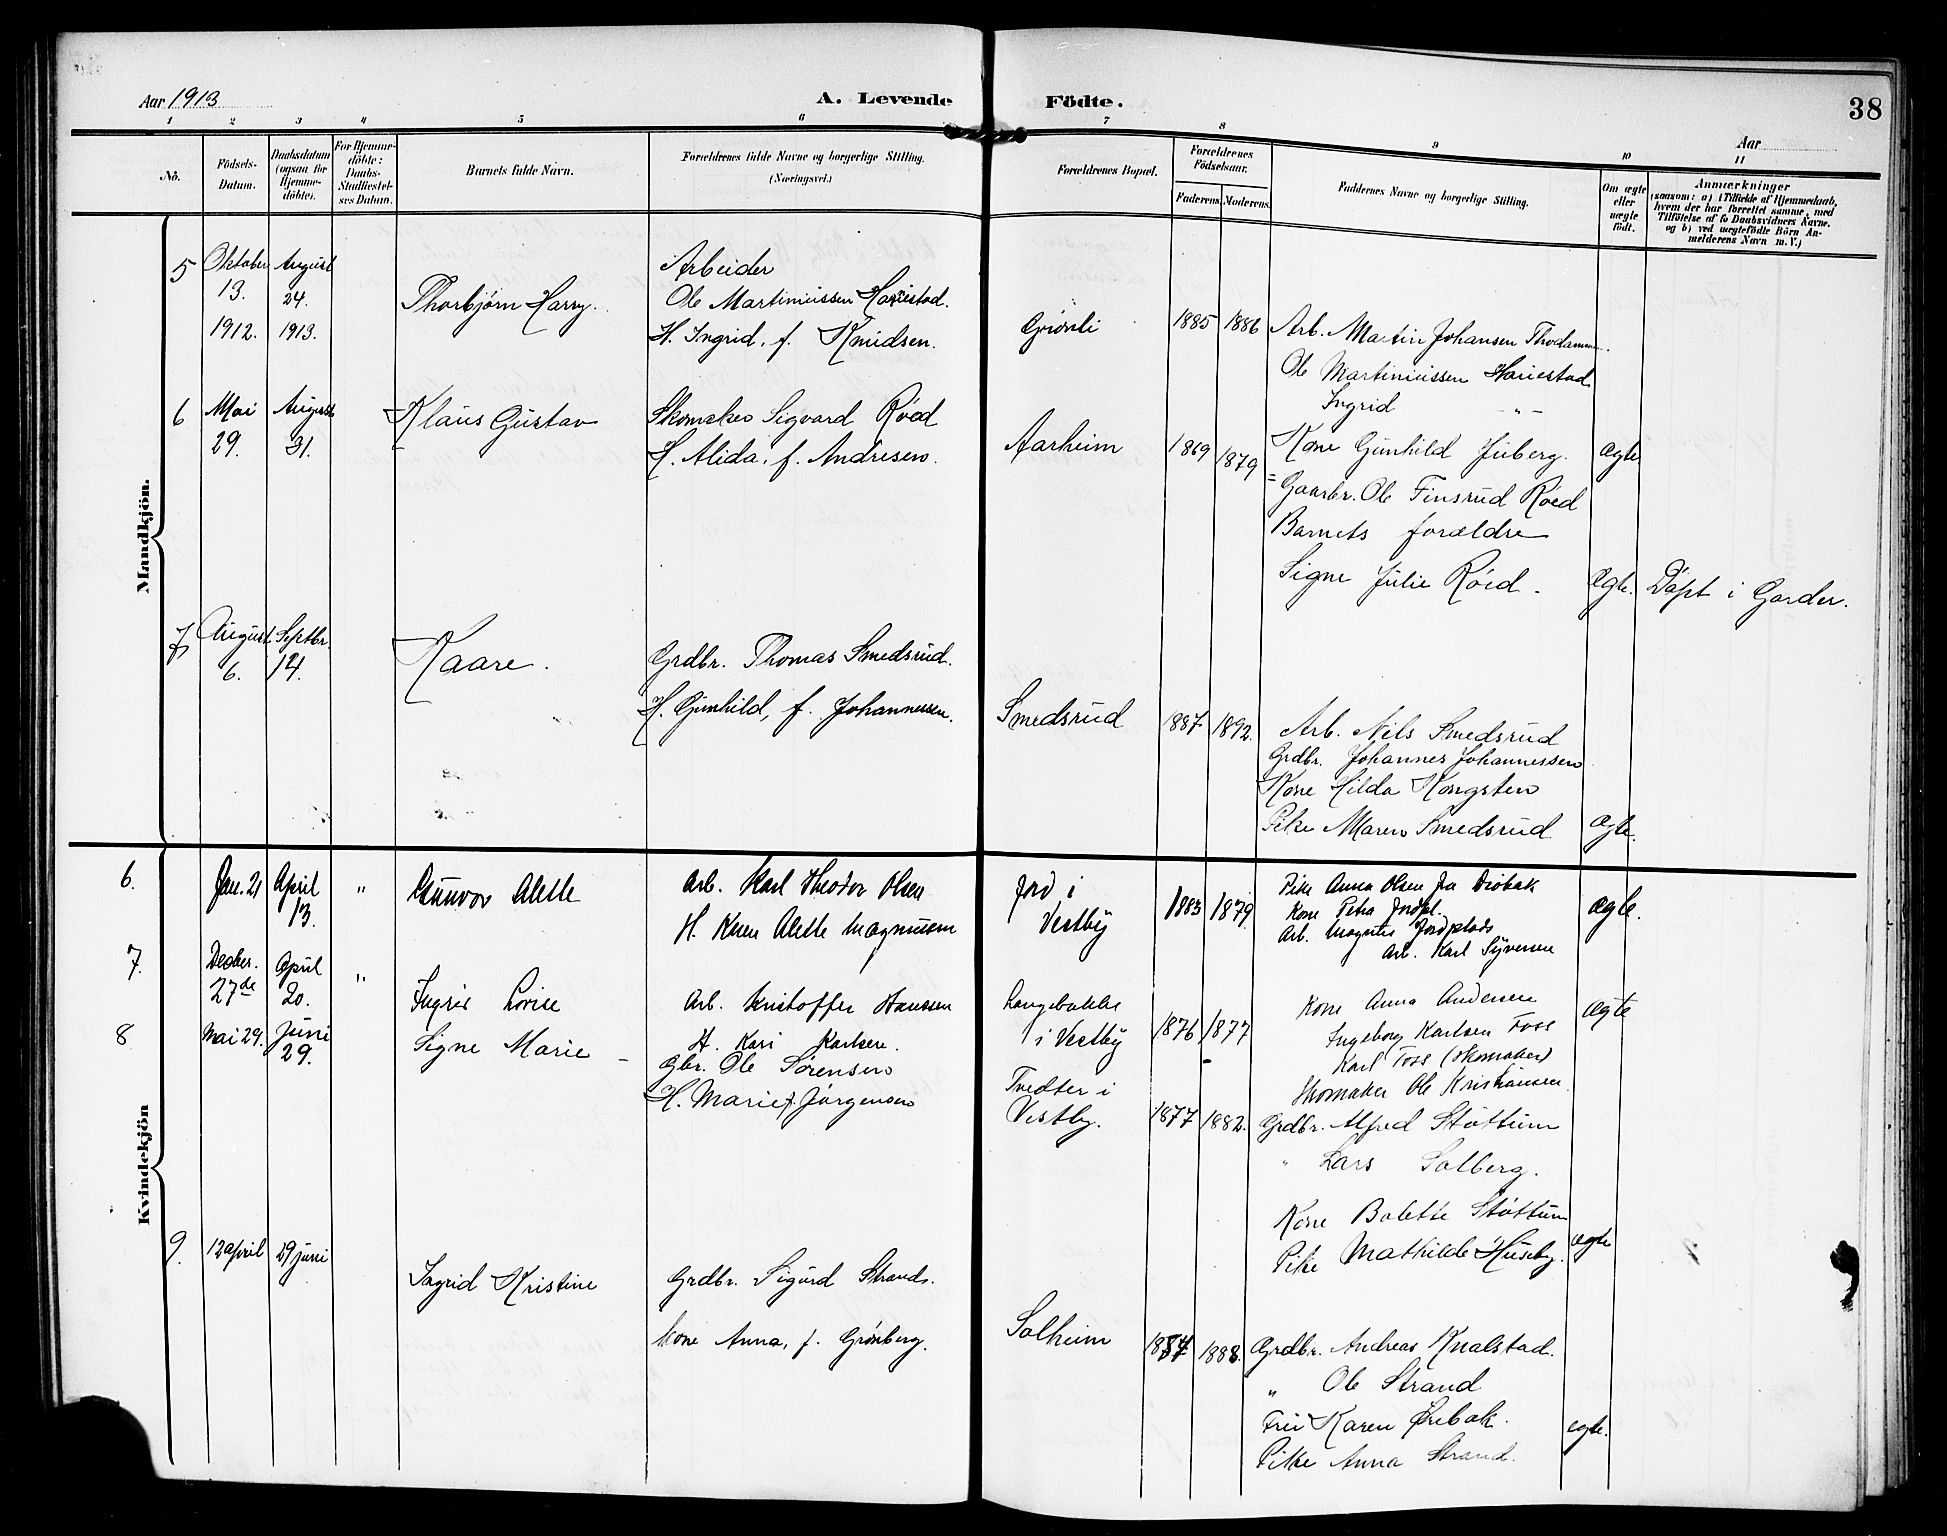 Aar 1913
A. Levende Födte.
38
Aar
1 2 3 4 5 6 7 8 9 10 11
No.
Födsels-
Datum.
Daabsdatum
(ogsaa för
Hjemme-
döbte).
For Hjemme-
döbte:
Daabs-
Stadfæstel-
ses Datum.
Barnets fulde Navn.
Forældrenes fulde Navne og borgerlige Stilling.
(Næringsvei.)
Forældrenes Bopæl.
Forældrenes
Födselsaar.
Faderens. Moderens.
Faddernes Navne og borgerlige Stilling.
Om ægte
eller
uægte
født.
Anmærkninger
(saasom: a) i Tilfælde af Hjemmedaab,
hvem der har forrettet samme, med
Tilföielse af to Daabsvidners Navne,
og b) ved uægtefödte Börn An-
melderens Navn m. V.)
Mandkjön.
5
Oktober
13.
1912.
August
24.
1913.
Thorbjørn Harry.
Arbeider
Ole Martiniussen Hauestad.
H. Ingrid, f. Knudsen.
Grønli
1885
1886
Arb. Martin Johansen
Ole Martiniussen Hauestad
Ingrid -"-
ægte.
6
Mai
29.
August
31.
Klaus Gustav
Skomaker Sigvard Röed
H. Alida, f. Andresen.
Aarheim
1869
1879
Kone Gunhild Juberg.
= Gaarbr. Ole Finsrud Röed
Barnets forældre
Signe Julie Röed.
Ægte.
Döpt i Garder.
7
August
6.
Septbr.
14.
Kaare.
Grdbr. Thomas Smedsrud.
H. Gunhild, f. Johannessen.
Smedsrud
1887
1892.
Arb. Nils Smedsrud
Grdbr. Johannes Johannessen
Kone Hilda Kongsten
Pike Maren Smedsrud
Ægte.
Kvindekjön
6.
Jan. 21
April
13.
"
Gunvor Alette
Arb. Karl Theodor Olsen
H. Karen Alette Magnussen
Jord i
Vestby
1883
1879.
Pike Anna Olsen fra Drøbak
Kone Petra Jordpl.
Arb. Magnus Jordplads
Arb. Karl Syversen
ægte.
7.
Decber.
27de
April
20.
"
Ingrid Lovise
Arb. Kristoffer Hanssen
H. Kari Karlsen.
Langebakke
i Vestby
1876
1877
Kone Anna Andersen
Ingeborg Karlsen Foss
Karl Foss (Skomaker)
Skomaker Ole Kristiansen.
ægte
8
Mai 29.
Juni
29.
Signe Marie
Gbr. Ole Sørensen
H. Marie f. Jørgensen
Tvedter i
Vestby.
1877
1882.
Grdbr. Alfred Støttum
" Lars Solberg.
Kone Bolette Støttum
Pike Mathilde Huseby.
Ægte
9.
12 april
29 juni
Ingrid Kristine
Grdbr. Sigurd Strand.
Kone Anna, f. Grønberg.
Solheim
1887
1888.
Grdbr. Andreas Knalstad.
" Ole Strand
Frü Karen Ørebak.
Pike Anna Strand.
ægte.